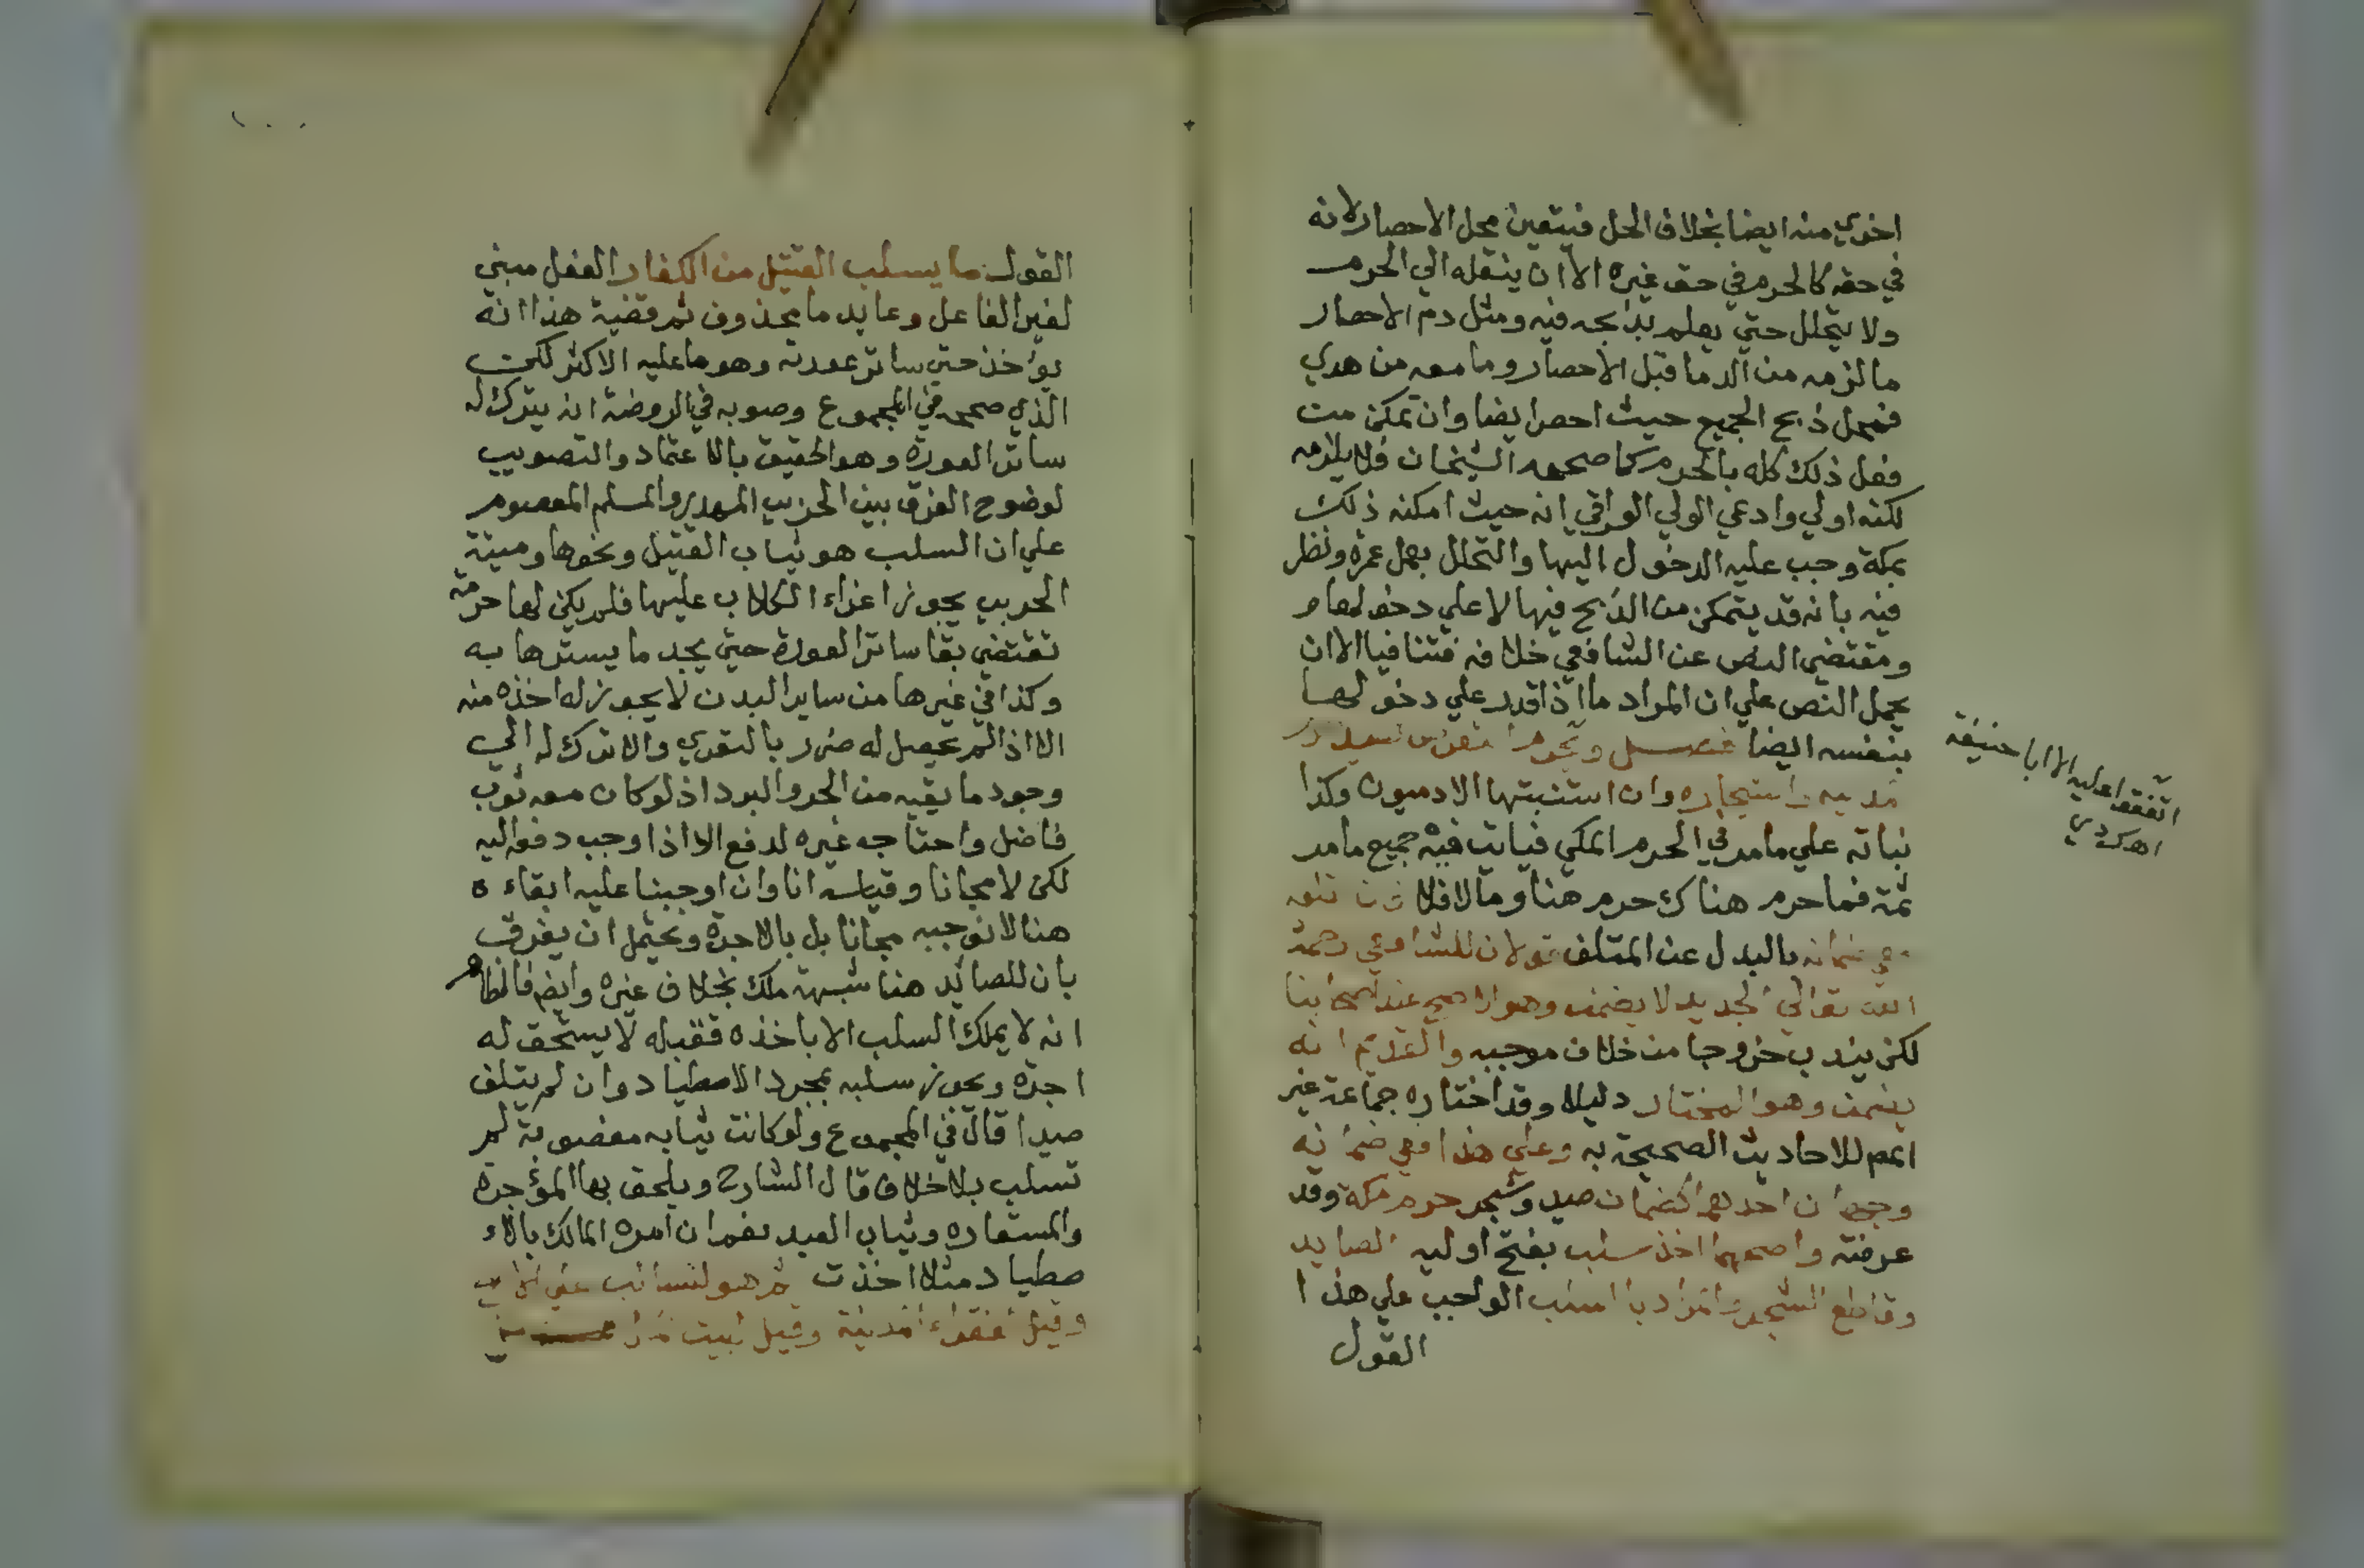 اخري منه ايضا بخلاف الحل فيتعين محل الاحصار لانه
في حقه كالحرم في حق غيره الا ان ينقله الي الحرم
ولا يتحلل حتي يعلم بذبحه فيه ومثل دم الاحصار
ما لزمه من الدما قبل الاحصار وما معه من هدي
فمحل ذبح الجميع حيث احصر ايضا وان تمكن من
فعل ذلك كله بالحرم كما صححه الشيخان فلا يلزمه
لكنه اولي وادعي الولي العراقي انه حيث امكنه ذلك
بمكة وجب عليه الدخول اليها والتحلل بعمل عمرة ونظر
فيه بانه قد يتمكن من الذبح فيها لا علي دخولها م
ومقتضي النص عن الشافعي خلافه فتنافيا الا ان
يحمل النص علي ان المراد ما اذا قدر علي دخولها
بنفسه ايضا فصل ويحرم
واشجاره وان استنبتها الادميون وكذا
نباته علي ما مر في الحرم المكي فياتي فيه جميع ما مر
ثمة فما حرم هناك حرم هنا وما لا فلا
ضمانه بالبدل عن المتلف قولان للشافعي رحمه
الله تعالي الجديد لا يضمن وهو الاصح عند اصحابنا
لكن يندب خروجا من خلاف موجبه والقديم انه
يضمن وهو المختار دليلا وقد اختاره جماعة غير
المص للاحاديث الصحيحة به وعلي هذا ففي ضمانه
وجهان احدهما كضمان صيد وشجر حرم مكة وقد
عرفته واصحهما اخذ سلب بفتح اوليه الصايد
وقاطع الشجر والمراد بالسلب الواجب علي هذا ا
القول
اتفقوا عليه الا ابا حنيفة
اهـ كردي
القول ما يسلب القتيل من الكفار الفعل مبني
لغير الفاعل وعايد ما محذوف ثم قضية هذا انه
يؤخذ حتي ساتر عورته وهو ما عليه الاكثر لكن
الذي صححه في المجموع وصوبه في الروضة انه يترك له
ساتر العورة وهو الحقيق بالاعتماد والتصويب
لوضوح الفرق بين الحربي المهدر والمسلم المعصوم
علي ان السلب هو ثياب القتيل ونحوها وميتة
الحربي يجوز اغراء الكلاب عليها فلم يكن لها حرمة
تقتضي بقا ساتر العورة حتي يجد ما يسترها به
وكذا في غيرها من ساير البدن لا يجوز له اخذه منه
الا اذا لم يحصل له ضرر بالتعري والا ترك له الي
وجود ما يقيه من الحر والبرد اذ لو كان معه ثوب
فاضل واحتاجه غيره لدفع الاذا وجب دفعه اليه
لكن لا مجانا وقياسه انا وان اوجبنا عليه ابقاء ه
هنا لا نوجبه مجانا بل بالاجرة ويحتمل ان يفرق
بان للصايد هنا شبهة ملك بخلاف غيره وايضا فالظاهر
انه لا يملك السلب الا باخذه فقبله لا يستحق له
اجرة ويجوز سلبه بمجرد الاصطياد وان لم يتلف
صيدا قال في المجموع ولو كانت ثيابه مغصوبة لم
تسلب بلا خلاف قال الشارح ويلحق بها المؤجرة
والمستعارة وثياب العبد نعم ان امره المالك بالا
صطياد مثلا اخذت ثم هو للسالب علي
وقيل لفقراء المدينة وقيل لبيت